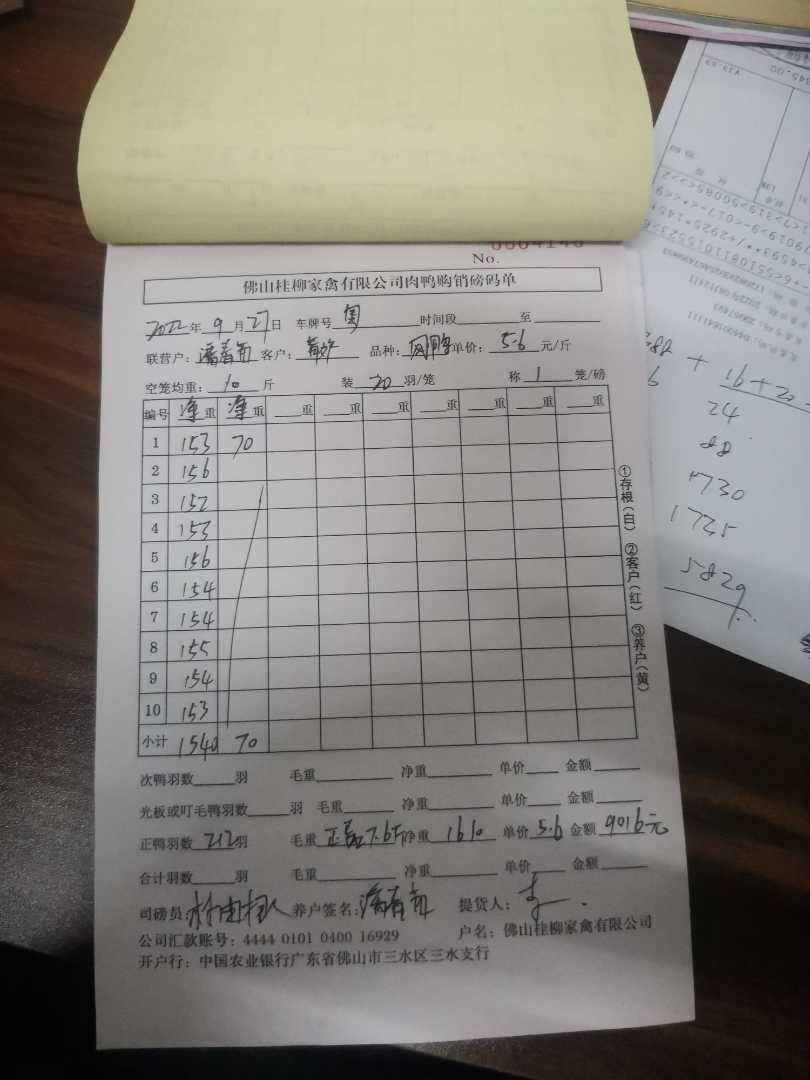 No. 0004146
佛山桂柳家禽有限公司肉鸭购销磅码单
2022年9月27日 车牌号 时间段 至
联营户： 客户： 品种： 单价：5.6 元/斤
空笼均重：10 斤 装 20 羽/笼 称 1 笼/磅
编号 净重 净重 重 重 重 重 重 重
1 153 70
2 156
3 152
4 153
5 156
6 154
7 154
8 155
9 154
10 153
小计 1540 70
次鸭羽数 羽 毛重 净重 单价 金额
光板或叮毛鸭羽数 羽 毛重 净重 单价 金额
正鸭羽数 212羽 毛重 7.6斤 净重 1610 单价 5.6 金额 9016元
合计羽数 羽 毛重 净重 单价 金额
司磅员： 养户签名： 提货人：
公司汇款账号：4444 0101 0400 16929 户名：佛山桂柳家禽有限公司
开户行：中国农业银行广东省佛山市三水区三水支行
①存根（白） ②客户（红） ③养户（黄）
24
88
1735
5829